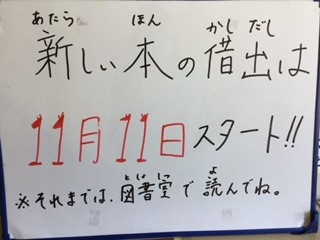 あたら ほん かし だし
新しい本の借出は
11月11日スタート!!
としょしつ よ
※それまでは、図書室で読んでね。